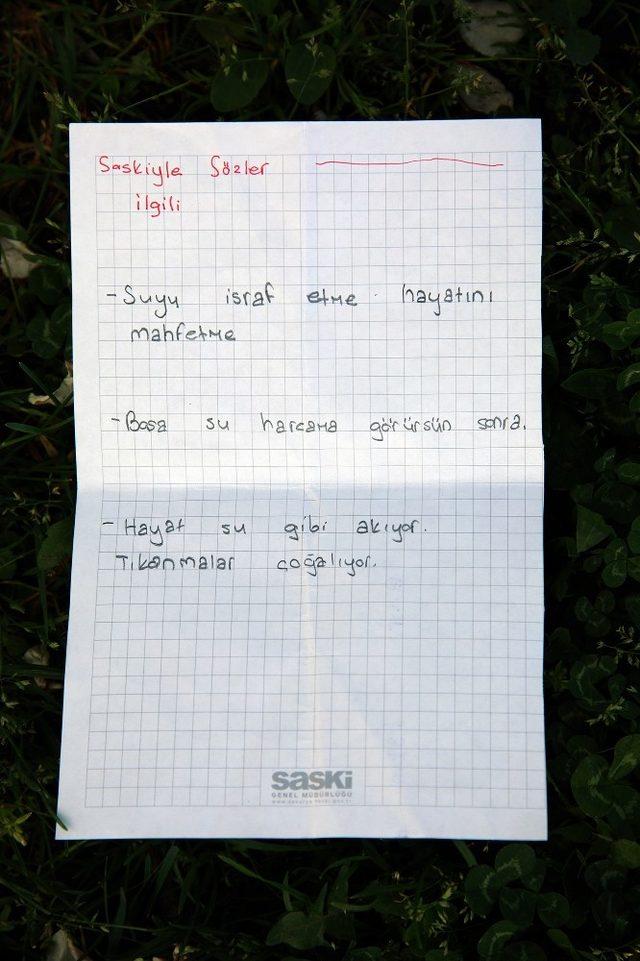 Saskiyle Sözler
ilgili
- Suyu israf etme. hayatını
mahfetme
- Bosa su harcama görürsün sonra.
- Hayat su gibi akıyor.
Tıkanmalar çoğalıyor.
SASKİ
GENEL MÜDÜRLÜĞÜ